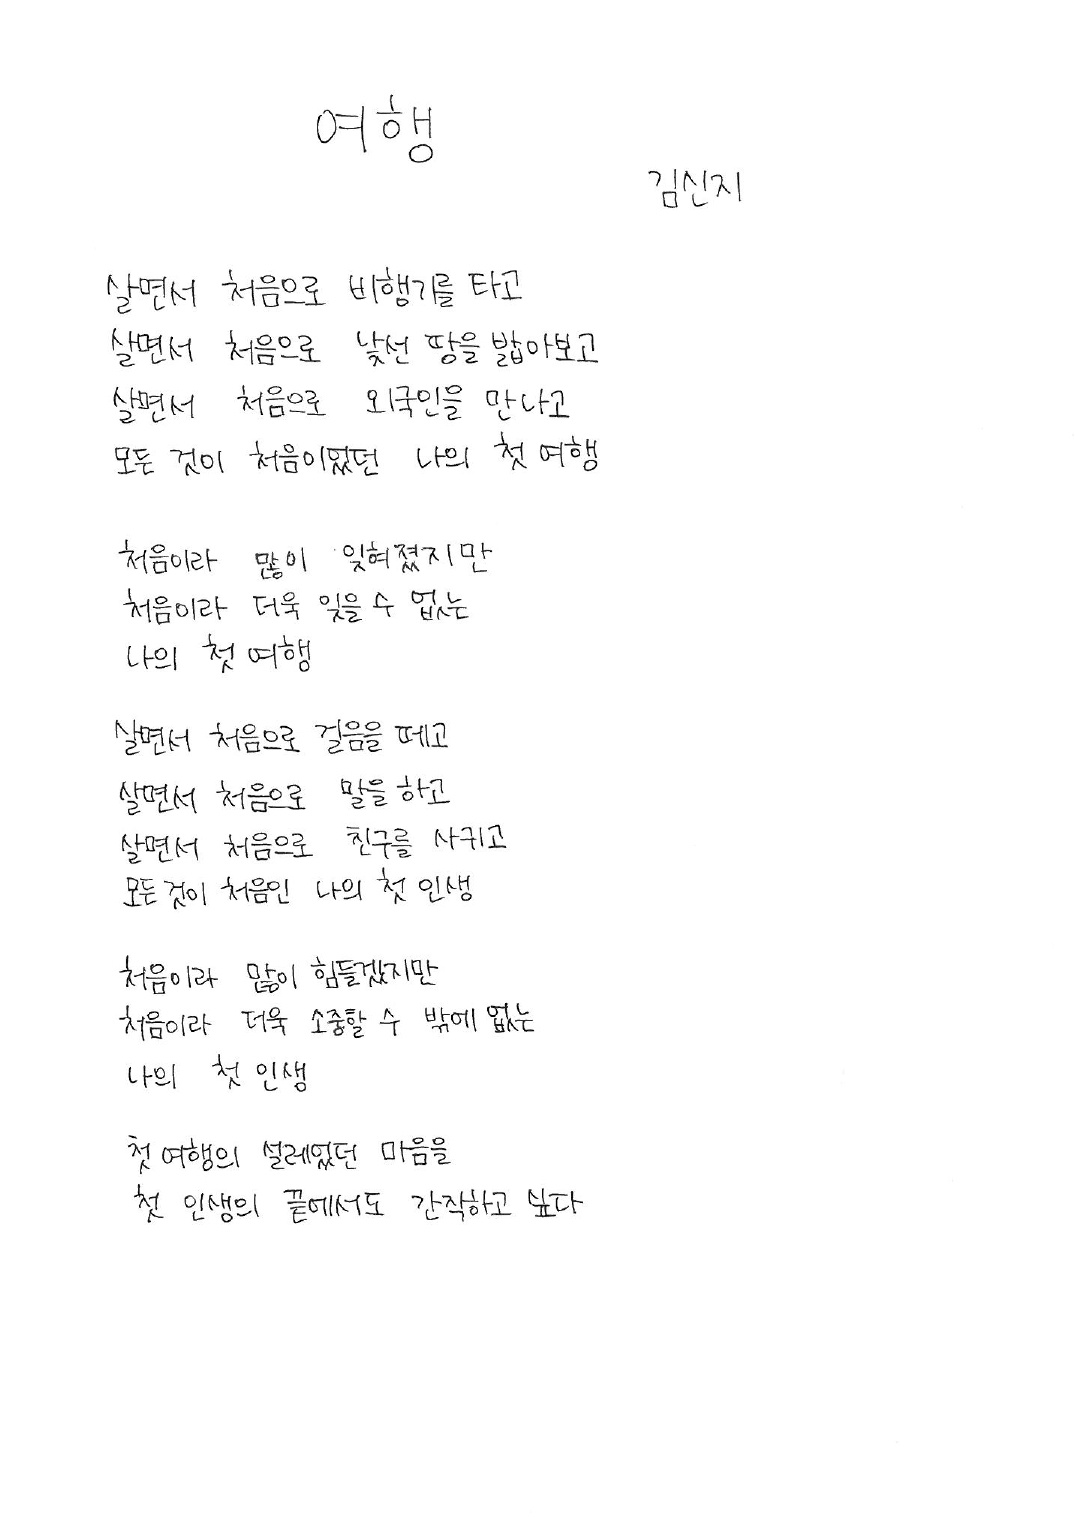 여행
김신지
살면서 처음으로 비행기를 타고
살면서 처음으로 낯선 땅을 밟아보고
살면서 처음으로 외국인을 만나고
모든 것이 처음이었던 나의 첫 여행
처음이라 많이 잊혀졌지만
처음이라 더욱 잊을 수 없는
나의 첫 여행
살면서 처음으로 걸음을 떼고
살면서 처음으로 말을 하고
살면서 처음으로 친구를 사귀고
모든 것이 처음인 나의 첫 인생
처음이라 많이 힘들겠지만
처음이라 더욱 소중할 수 밖에 없는
나의 첫 인생
첫 여행의 설레었던 마음을
첫 인생의 끝에서도 간직하고 싶다